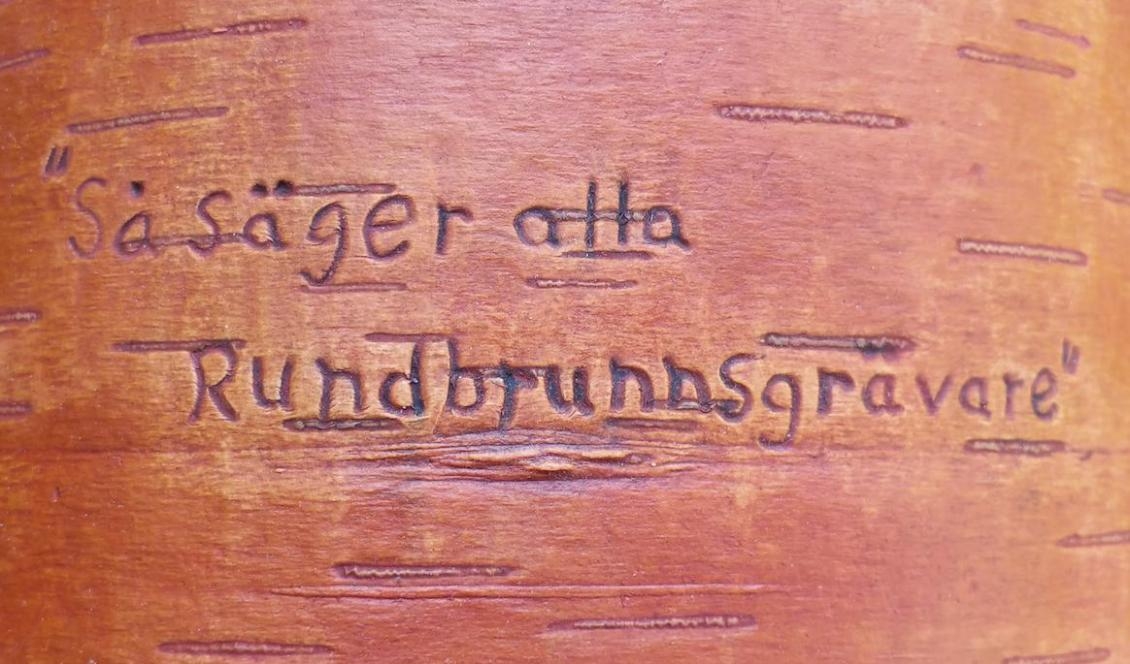 "Så säger alla
Rundbrunnsgrävare"